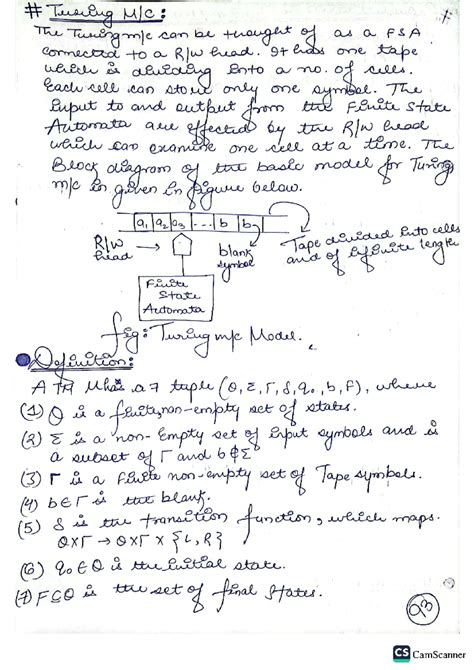 # Turing M/C:
The Turing m/c can be thought of as a FSA
connected to a R/W head. It has one tape
which is dividing into a no. of cells.
Each cell can store only one symbol. The
input to and output from the Finite State
Automata are effected by the R/W head
which can examine one cell at a time. The
Block diagram of the basic model for Turing
m/c is given in figure below.
a₁ a₂ a₃ ... b b
R/W head
blank symbol
Tape divided into cells
and of infinite length
Finite
State
Automata
fig: Turing m/c Model.
Definition:
A TM is a 7 tuple (Q, Σ, Γ, δ, q₀, b, F), where
(1) Q is a finite, non-empty set of states.
(2) Σ is a non-Empty set of input symbols and is
a subset of Γ and b∉Σ
(3) Γ is a finite non-empty set of Tape symbols.
(4) b∈Γ is the blank.
(5) δ is the transition function, which maps.
Q×Γ → Q×Γ × {L, R}
(6) q₀∈Q is the initial state.
(7) F⊆Q is the set of final states.
93
CS CamScanner